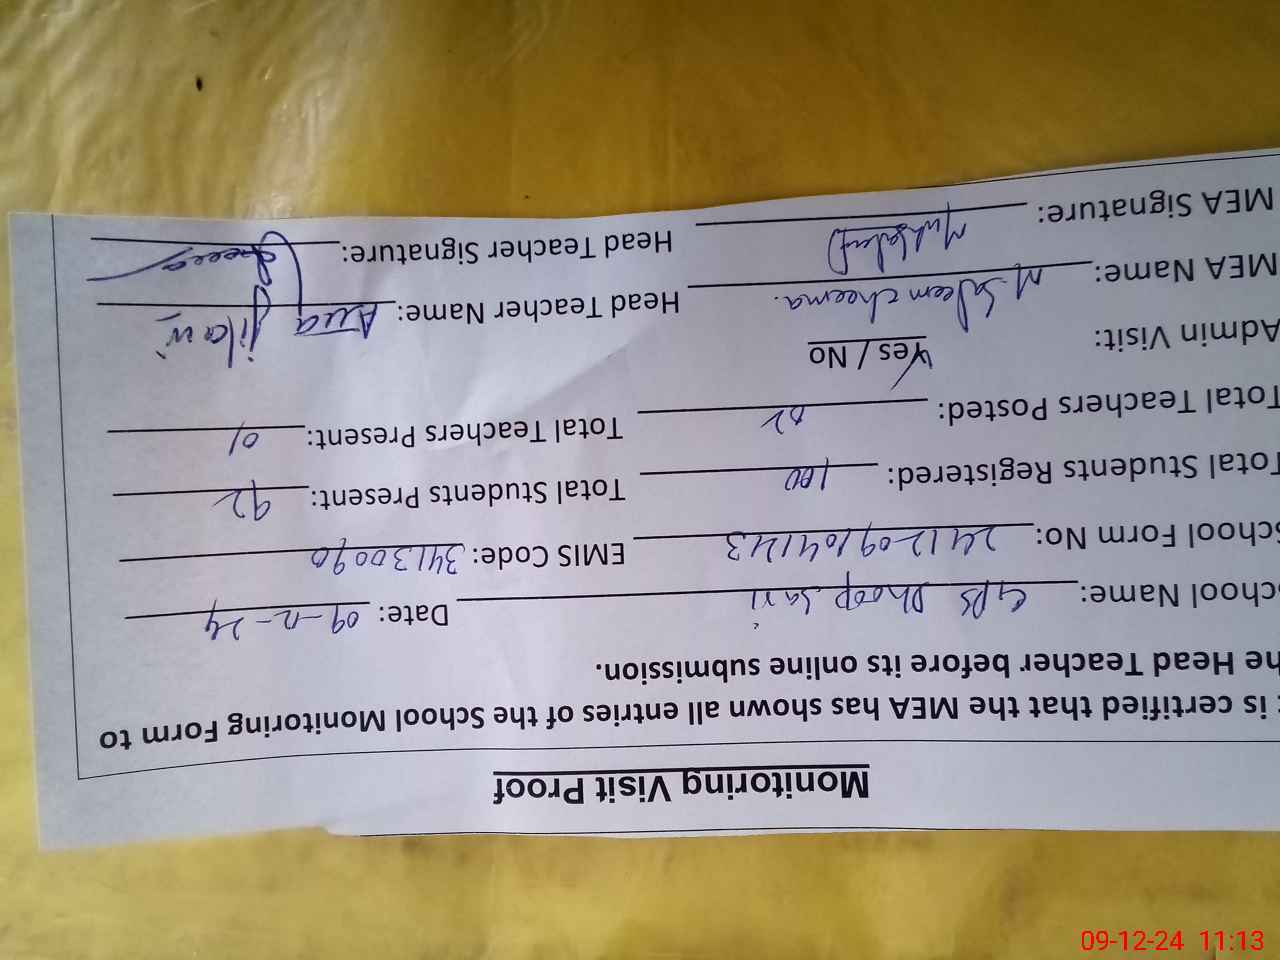 Monitoring Visit Proof
is certified that the MEA has shown all entries of the School Monitoring Form to
he Head Teacher before its online submission.
chool Name: GPS Dhoop Sari Date: 09-12-24
School Form No: 241209104123 EMIS Code: 34130090
Total Students Registered: 100 Total Students Present: 92
Total Teachers Posted: 02 Total Teachers Present: 01
Admin Visit: Yes / No
MEA Name: M Saleem cheema. Head Teacher Name: Jilani
MEA Signature: Head Teacher Signature:
09-12-24 11:13